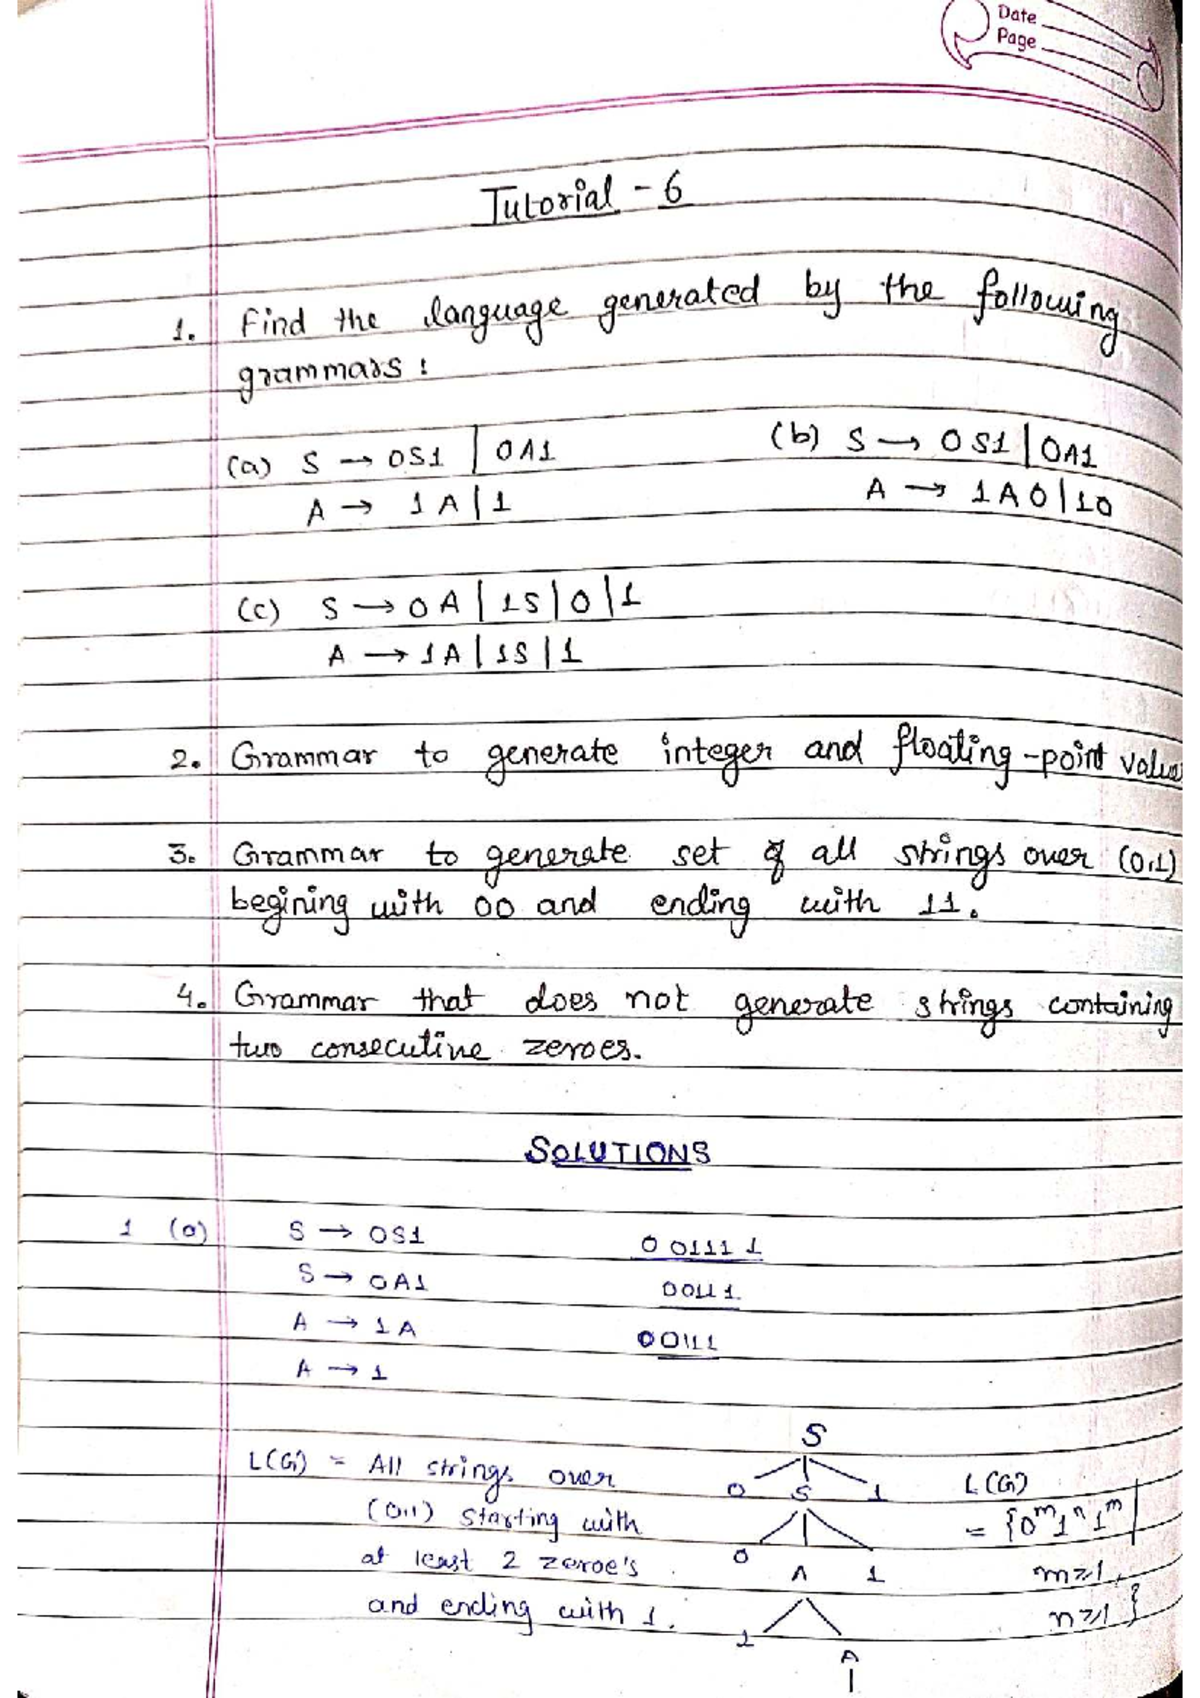 Date
Page
Tutorial - 6
1. Find the language generated by the following
grammars :
(a) S → 0S1 | 0A1
A → 1A | 1
(b) S → 0S1 | 0A1
A → 1A0 | 10
(c) S → 0A | 1S | 0 | 1
A → 1A | 1S | 1
2. Grammar to generate integer and floating-point value
3. Grammar to generate set of all strings over (0,1)
begining with 00 and ending with 11.
4. Grammar that does not generate strings containing
two consecutive zeroes.
SOLUTIONS
1 (a) S → 0S1 001111
S → 0A1 00111
A → 1A 00111
A → 1
L(G) = All strings over
(0,1) starting with
at least 2 zeroe's
and ending with 1.
S
0 S 1
0 A 1
1 A
L(G)
= {0^m 1^n 1^m |
m≥1,
n≥1 }